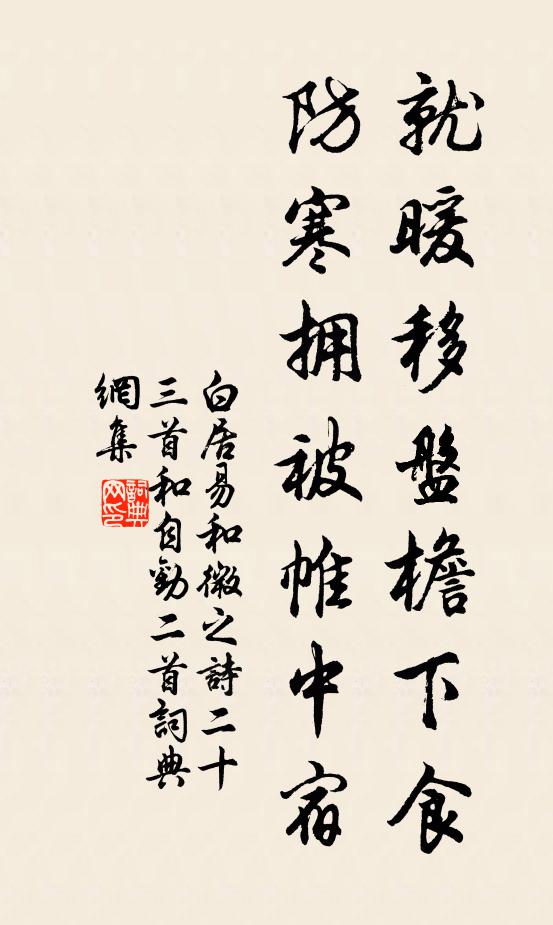 就暖移盤檐下食
防寒拥被帷中宿
白居易和微之詩二十
三首和自勸二首詞典
網集
詞典
网印